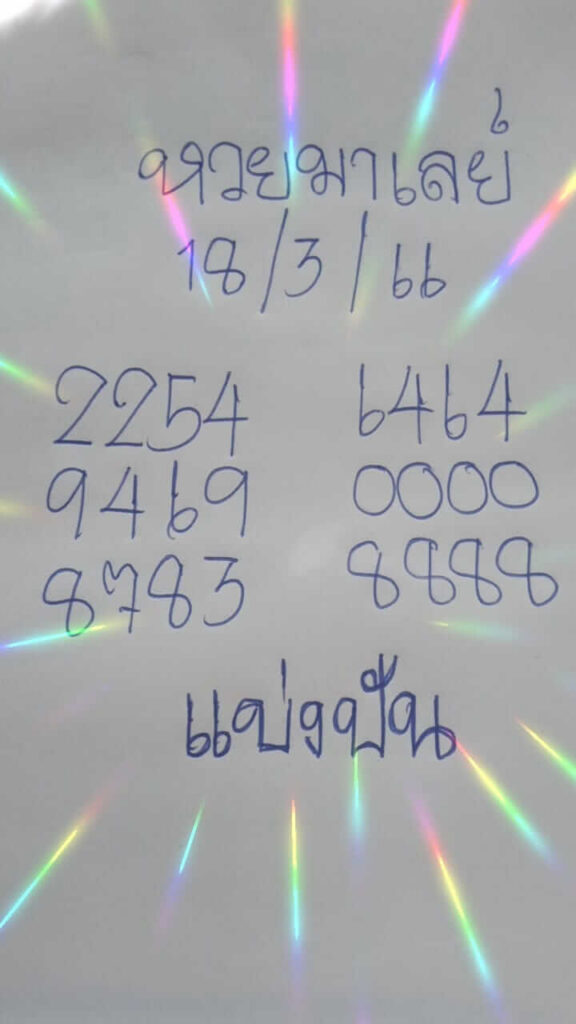 หวยมาเลย์
18/3/66
2254 6464
9469 0000
8783 8888
แบ่งปัน